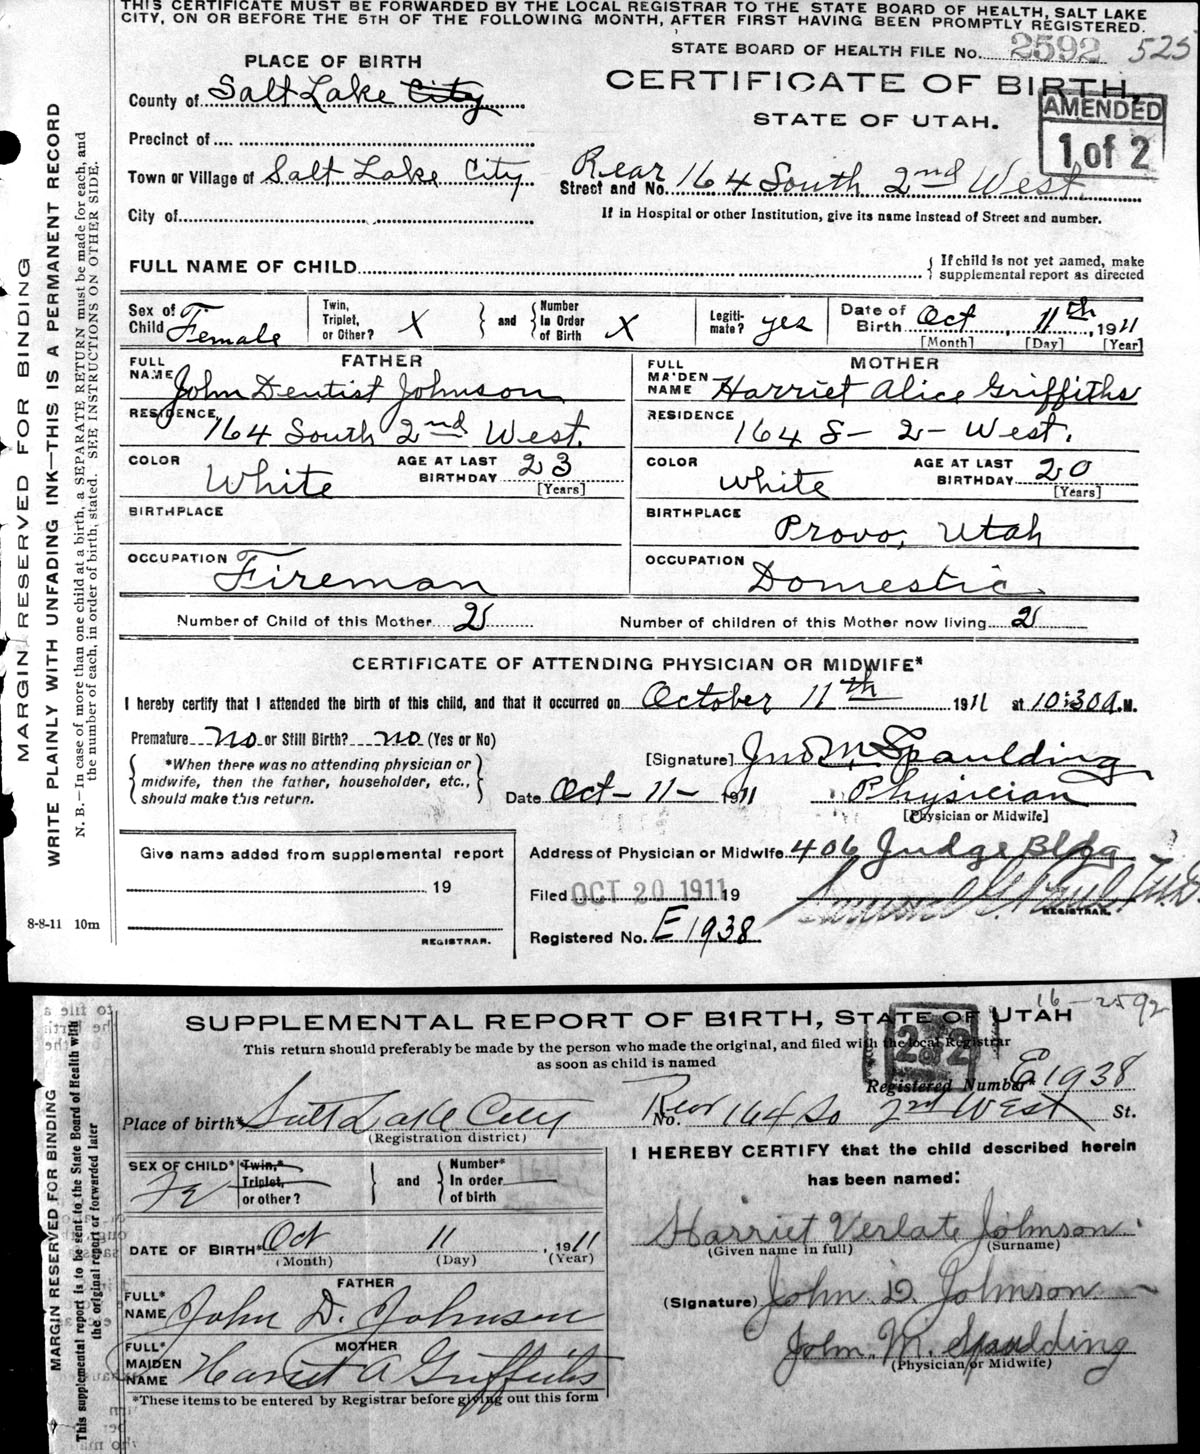 THIS CERTIFICATE MUST BE FORWARDED BY THE LOCAL REGISTRAR TO THE STATE BOARD OF HEALTH, SALT LAKE
CITY, ON OR BEFORE THE 5TH OF THE FOLLOWING MONTH, AFTER FIRST HAVING BEEN PROMPTLY REGISTERED.
STATE BOARD OF HEALTH FILE No. 2592 525
PLACE OF BIRTH
CERTIFICATE OF BIRTH,
County of Salt Lake City
AMENDED
STATE OF UTAH.
1 of 2
Precinct of
Rear
Town or Village of Salt Lake City Street and No. 164 South 2nd West.
City of If in Hospital or other Institution, give its name instead of Street and number.
FULL NAME OF CHILD If child is not yet named, make
supplemental report as directed
Sex of Child Female Twin, Triplet, or Other? X and Number In Order of Birth X Legiti-mate? yes Date of Birth Oct, 11th, 1911
[Month] [Day] [Year]
FATHER MOTHER
FULL NAME John Dentist Johnson FULL MAIDEN NAME Harriet Alice Griffiths
RESIDENCE 164 South 2nd West. RESIDENCE 164 S- 2- West.
COLOR White AGE AT LAST BIRTHDAY 23 [Years] COLOR White AGE AT LAST BIRTHDAY 20 [Years]
BIRTHPLACE BIRTHPLACE Provo, Utah
OCCUPATION Fireman OCCUPATION Domestic
Number of Child of this Mother 2 Number of children of this Mother now living 2
CERTIFICATE OF ATTENDING PHYSICIAN OR MIDWIFE*
I hereby certify that I attended the birth of this child, and that it occurred on October 11th 1911 at 10:30 A.M.
Premature no or Still Birth? no (Yes or No)
[Signature] Jno M. Spaulding
*When there was no attending physician or
midwife, then the father, householder, etc.,
should make this return.
Date Oct - 11 - 1911 Physician
[Physician or Midwife]
Give name added from supplemental report
Address of Physician or Midwife 406 Judge Bldg
19
Filed OCT 20 1911 19
REGISTRAR.
Registered No. E1938
REGISTRAR.
8-8-11 10m
MARGIN RESERVED FOR BINDING
WRITE PLAINLY WITH UNFADING INK—THIS IS A PERMANENT RECORD
N. B.—In case of more than one child at a birth, a SEPARATE RETURN must be made for each, and
the number of each, in order of birth, stated. SEE INSTRUCTIONS ON OTHER SIDE.
16-2592
SUPPLEMENTAL REPORT OF BIRTH, STATE OF UTAH
This return should preferably be made by the person who made the original, and filed with the local Registrar
as soon as child is named
2 of 2
Registered Number* E1938
Place of birth* Salt Lake City Rear No. 164 So 2nd West St.
(Registration district)
SEX OF CHILD* Fe Twin,* Triplet, or other? and Number* In order of birth
I HEREBY CERTIFY that the child described herein
has been named:
Harriet Verlate Johnson
(Given name in full) (Surname)
DATE OF BIRTH* Oct 11, 1911
(Month) (Day) (Year)
FATHER
FULL* NAME John D. Johnson
(Signature) John D. Johnson
MOTHER
FULL* MAIDEN NAME Harriet A Griffiths
John M. Spaulding
(Physician or Midwife)
*These items to be entered by Registrar before giving out this form
MARGIN RESERVED FOR BINDING
This supplemental report is to be sent to the State Board of Health with
the original report or forwarded later